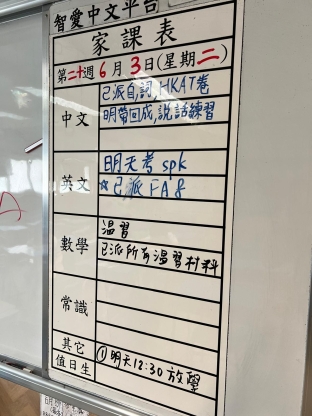 智愛中文平台
家課表
第二十週6月3日(星期二)
中文
已派自詞,HKAT卷
明帶回成,說話練習
英文
明天考spk
☆已派FA8
數學
溫習
已派所有溫習材料
常識
其它
值日生
①明天12:30放學